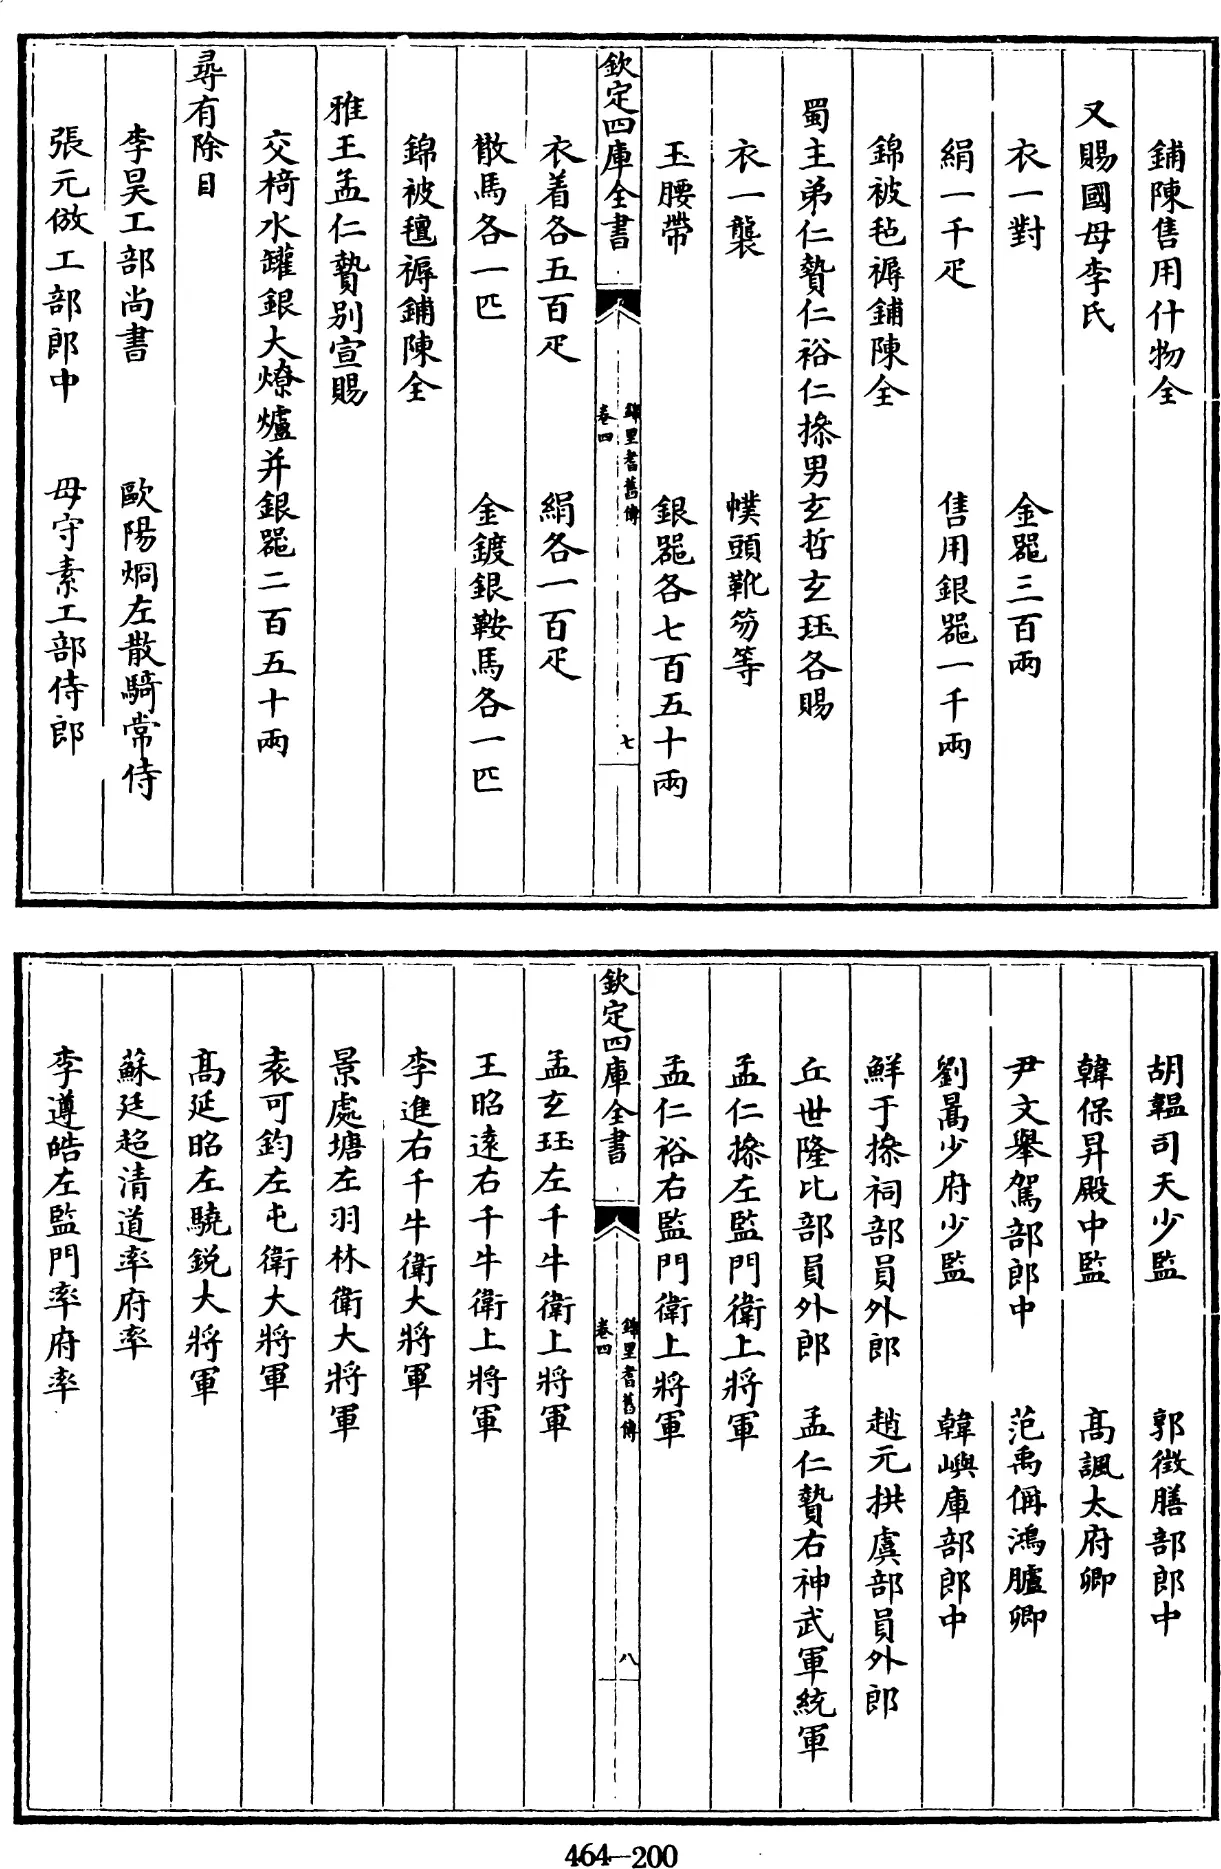 鋪陳售用什物全
又賜國母李氏
衣一對　金器三百兩
絹一千疋　售用銀器一千兩
錦被毡褥鋪陳全
蜀主弟仁贄仁裕仁操男玄哲玄珏各賜
衣一襲　幞頭靴笏等
玉腰帶　銀器各七百五十兩
欽定四庫全書　錦里耆舊傳　卷四　七
衣着各五百疋　絹各一百疋
散馬各一匹　金鍍銀鞍馬各一匹
錦被氊褥鋪陳全
雅王孟仁贄別宣賜
交椅水罐銀大燎爐并銀器二百五十兩
尋有除目
李昊工部尚書　歐陽烱左散騎常侍
張元倣工部郎中　母守素工部侍郎
胡韞司天少監　郭徴膳部郎中
韓保昇殿中監　髙諷太府卿
尹文舉駕部郎中　范禹偁鴻臚卿
劉暠少府少監　韓嶼庫部郎中
鮮于操祠部員外郎　趙元拱虞部員外郎
丘世隆比部員外郎　孟仁贄右神武軍統軍
孟仁操左監門衛上將軍
孟仁裕右監門衛上將軍
欽定四庫全書　錦里耆舊傳　卷四　八
孟玄珏左千牛衛上將軍
王昭遠右千牛衛上將軍
李進右千牛衛大將軍
景處塘左羽林衛大將軍
袁可鈞左屯衛大將軍
髙延昭左驍銳大將軍
蘇廷超清道率府率
李遵皓左監門率府率
464—200